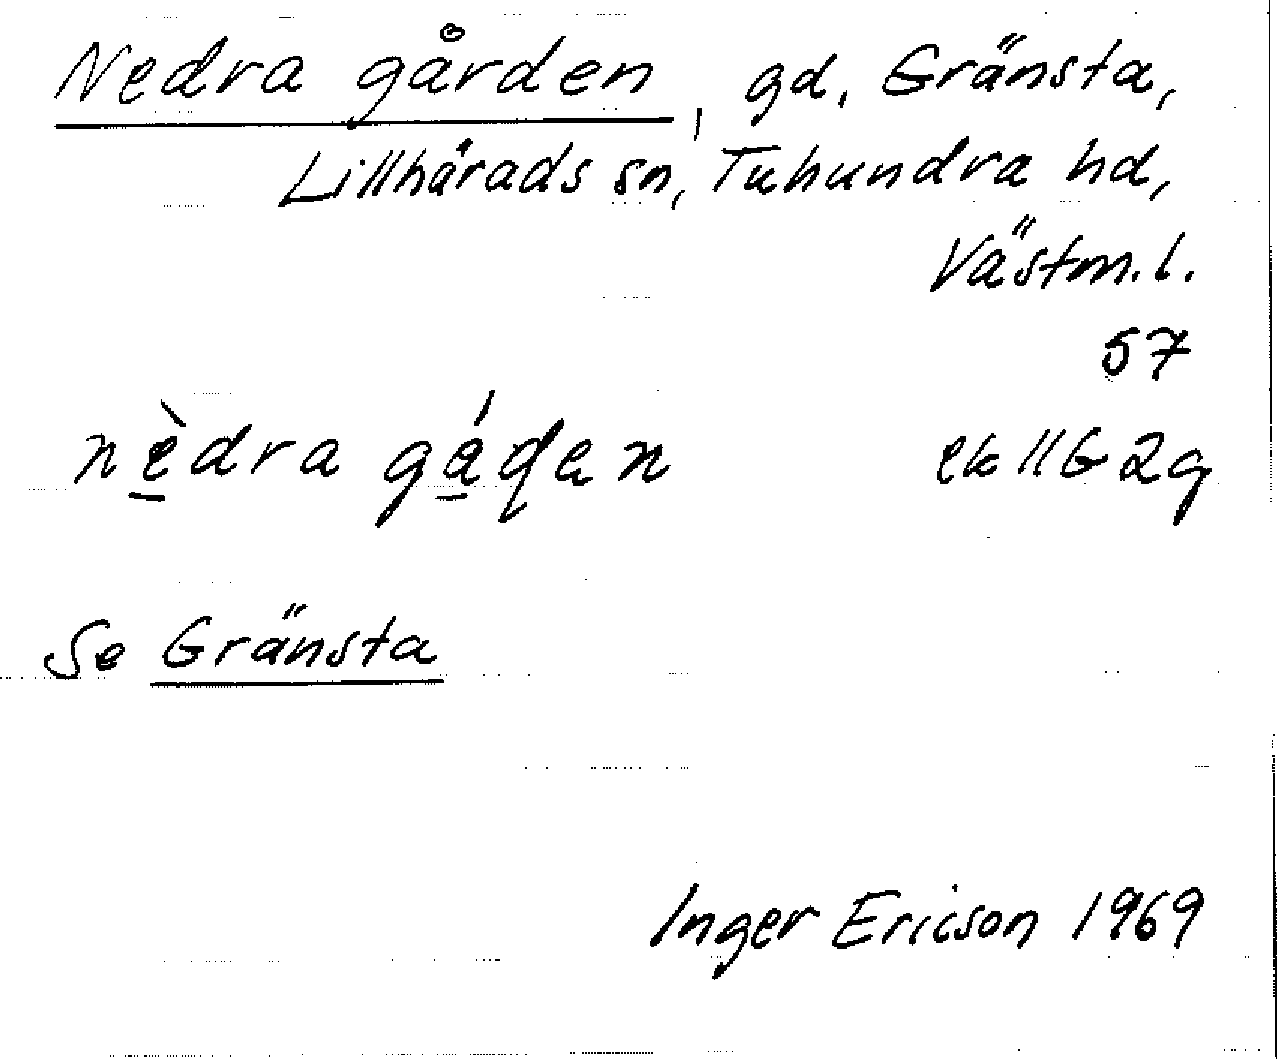 Nedra gården, gd, Gränsta,
Lillhärads sn, Tuhundra hd,
Västm.l.
57
nèdra gáɖen ek 11G 2g
Se Gränsta
Inger Ericson 1969